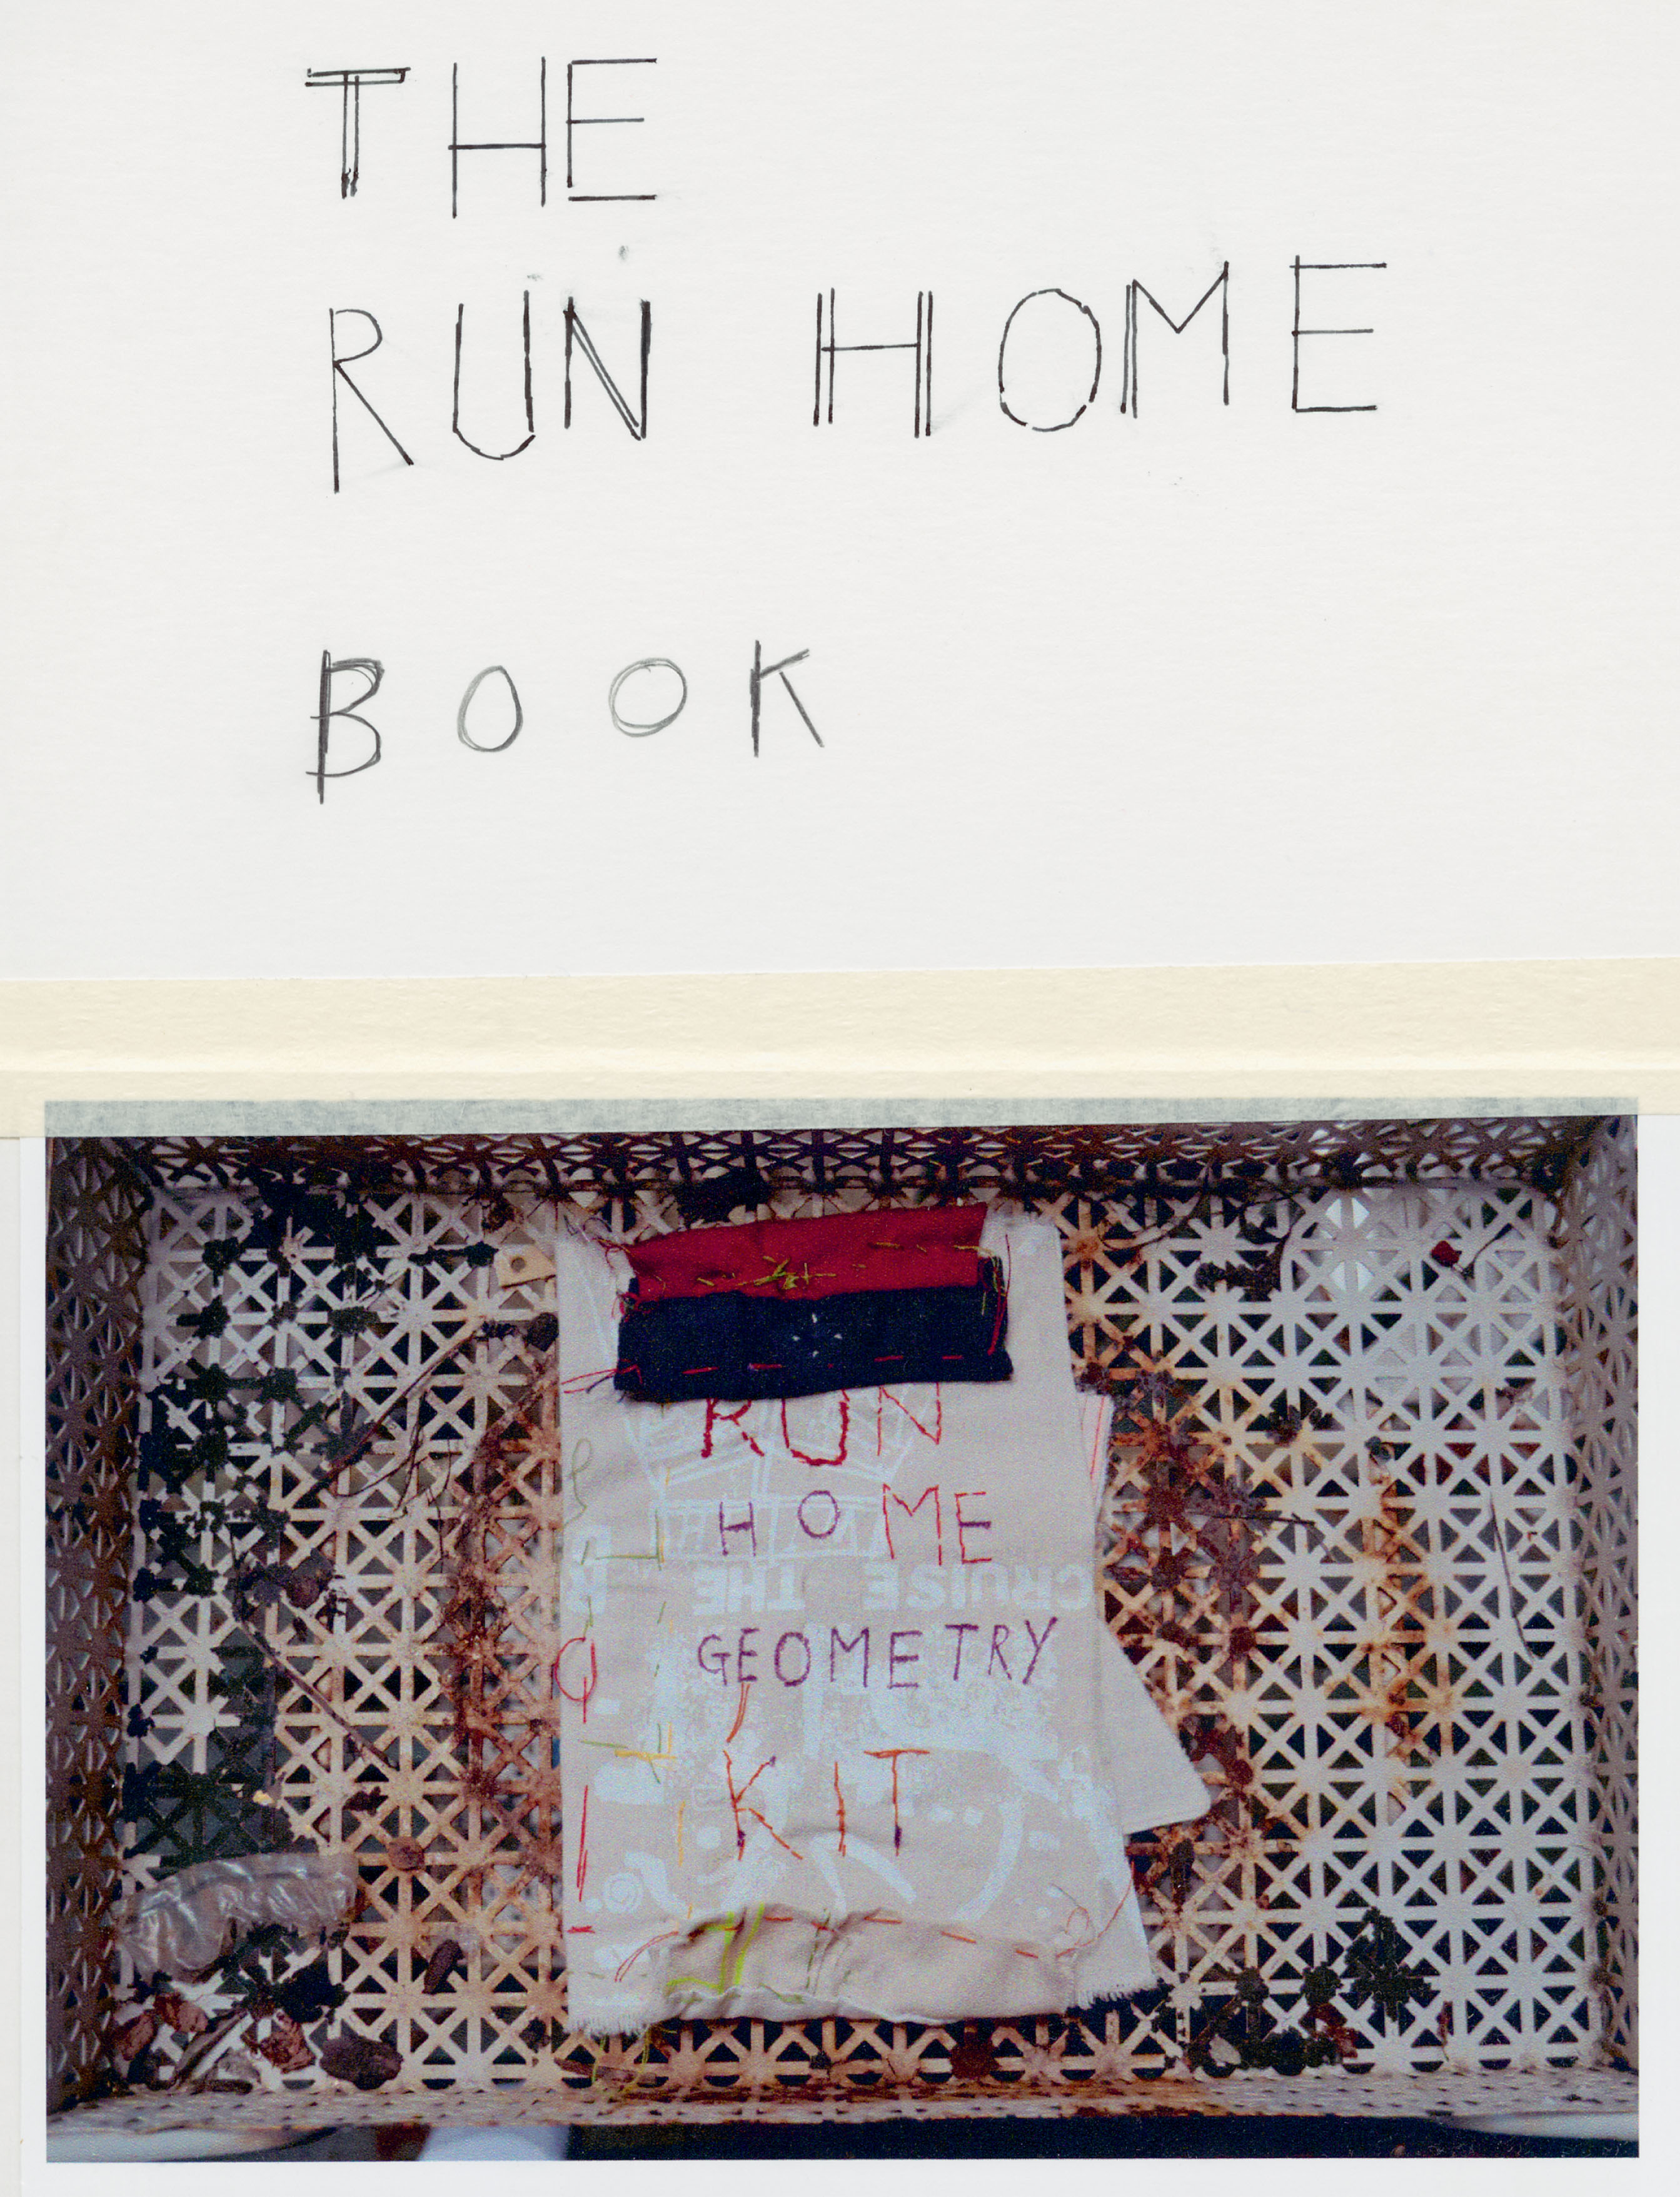 THE
RUN HOME
BOOK
RUN
HOME
GEOMETRY
KIT
CRUISE THE